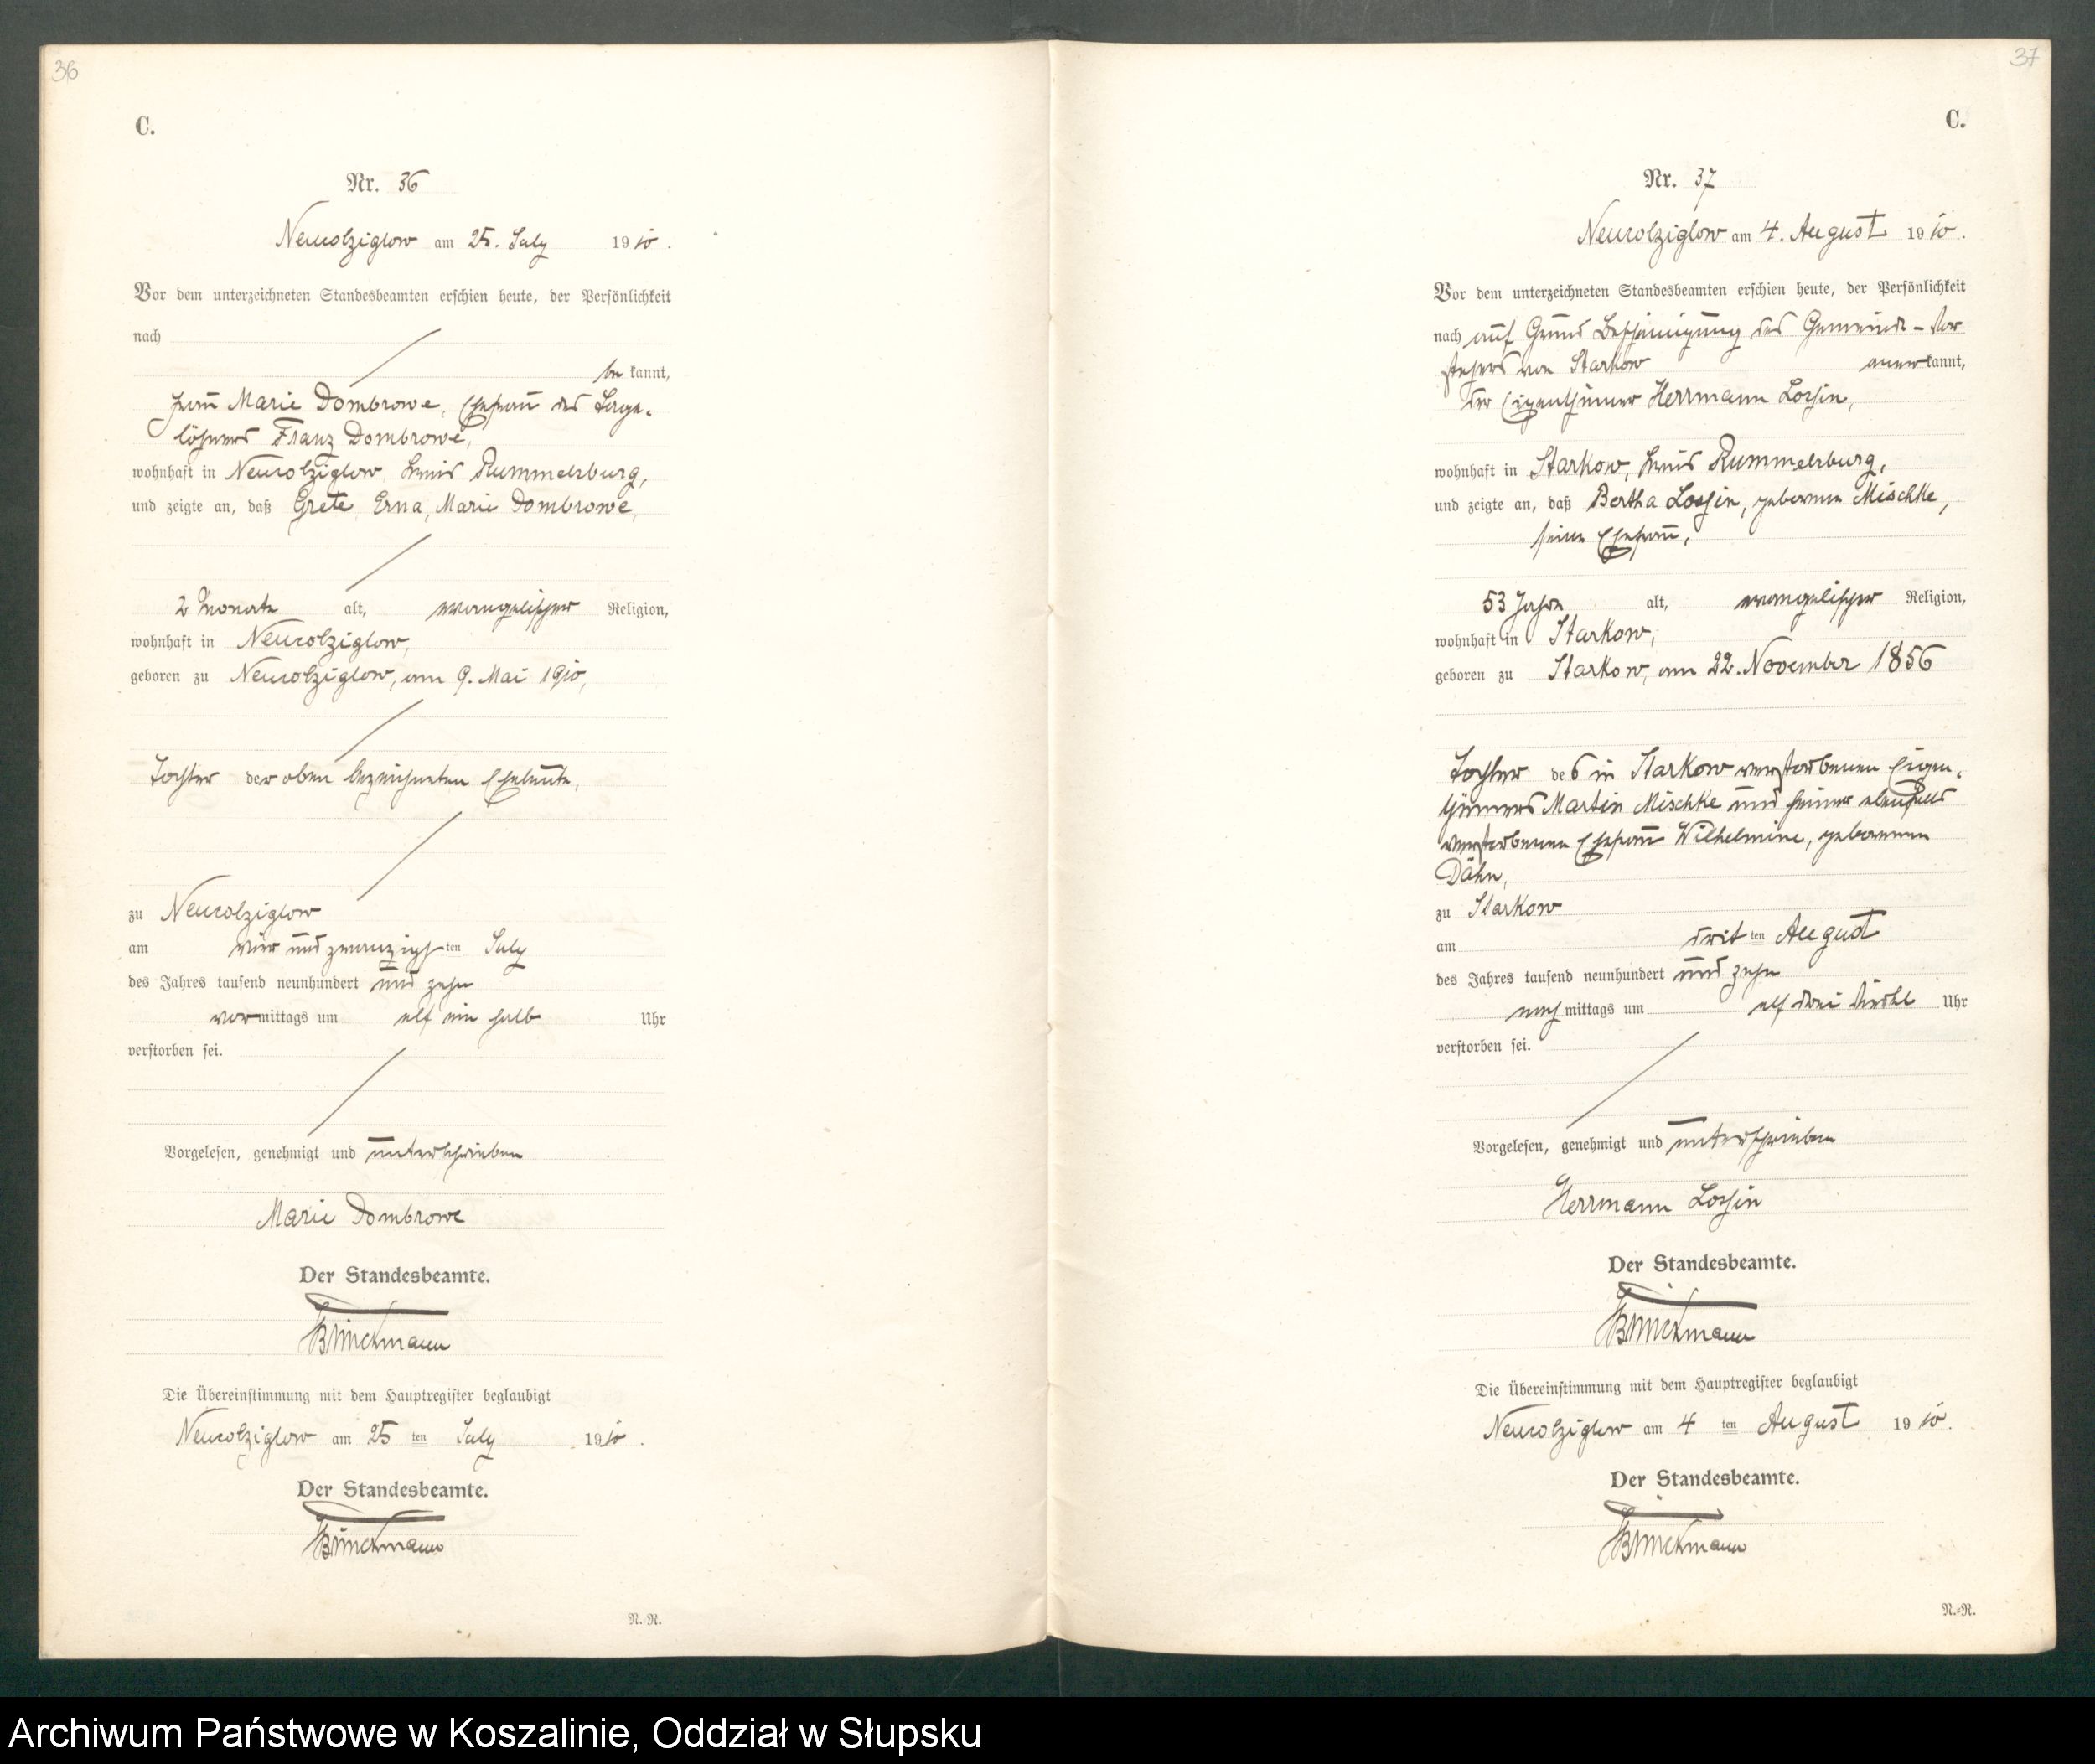 36
C.
Nr. 36
Neukolziglow am 25. July 1910.
Vor dem unterzeichneten Standesbeamten erschien heute, der Persönlichkeit
nach
be kannt,
Frau Marie Dombrowe, Ehefrau des Tage-
löhners Franz Dombrowe,
wohnhaft in Neukolziglow, Kreis Rummelsburg,
und zeigte an, daß Grete, Erna, Marie Dombrowe,
2 Monate alt, evangelischer Religion,
wohnhaft in Neukolziglow,
geboren zu Neukolziglow, am 9. Mai 1910,
Tochter der oben bezeichneten Eheleute,
zu Neukolziglow
am vier und zwanzigsten July
des Jahres tausend neunhundert und zehn
vormittags um elf ein halb Uhr
verstorben sei.
Vorgelesen, genehmigt und unterschrieben
Marie Dombrowe
Der Standesbeamte.
Brinckmann
Die Übereinstimmung mit dem Hauptregister beglaubigt
Neukolziglow am 25 ten July 1910.
Der Standesbeamte.
Brinckmann
N.-R.
37
C.
Nr. 37
Neukolziglow am 4. August 1910.
Vor dem unterzeichneten Standesbeamten erschien heute, der Persönlichkeit
nach auf Grund Bescheinigung des Gemeinde-Vor
stehers von Starkow anerkannt,
der Eigenthümer Herrmann Lossin,
wohnhaft in Starkow, Kreis Rummelsburg,
und zeigte an, daß Bertha Lossin, geborene Mischke,
seine Ehefrau,
53 Jahre alt, evangelischer Religion,
wohnhaft in Starkow,
geboren zu Starkow, am 22. November 1856
Tochter des in Starkow verstorbenen Eigen-
thümers Martin Mischke und seiner ebenfalls
verstorbenen Ehefrau Wilhelmine, geborenen
Dähn,
zu Starkow
am dritten August
des Jahres tausend neunhundert und zehn
nachmittags um elf drei Viertel Uhr
verstorben sei.
Vorgelesen, genehmigt und unterschrieben
Herrmann Lossin
Der Standesbeamte.
Brinckmann
Die Übereinstimmung mit dem Hauptregister beglaubigt
Neukolziglow am 4 ten August 1910.
Der Standesbeamte.
Brinckmann
N.-R.
Archiwum Państwowe w Koszalinie, Oddział w Słupsku